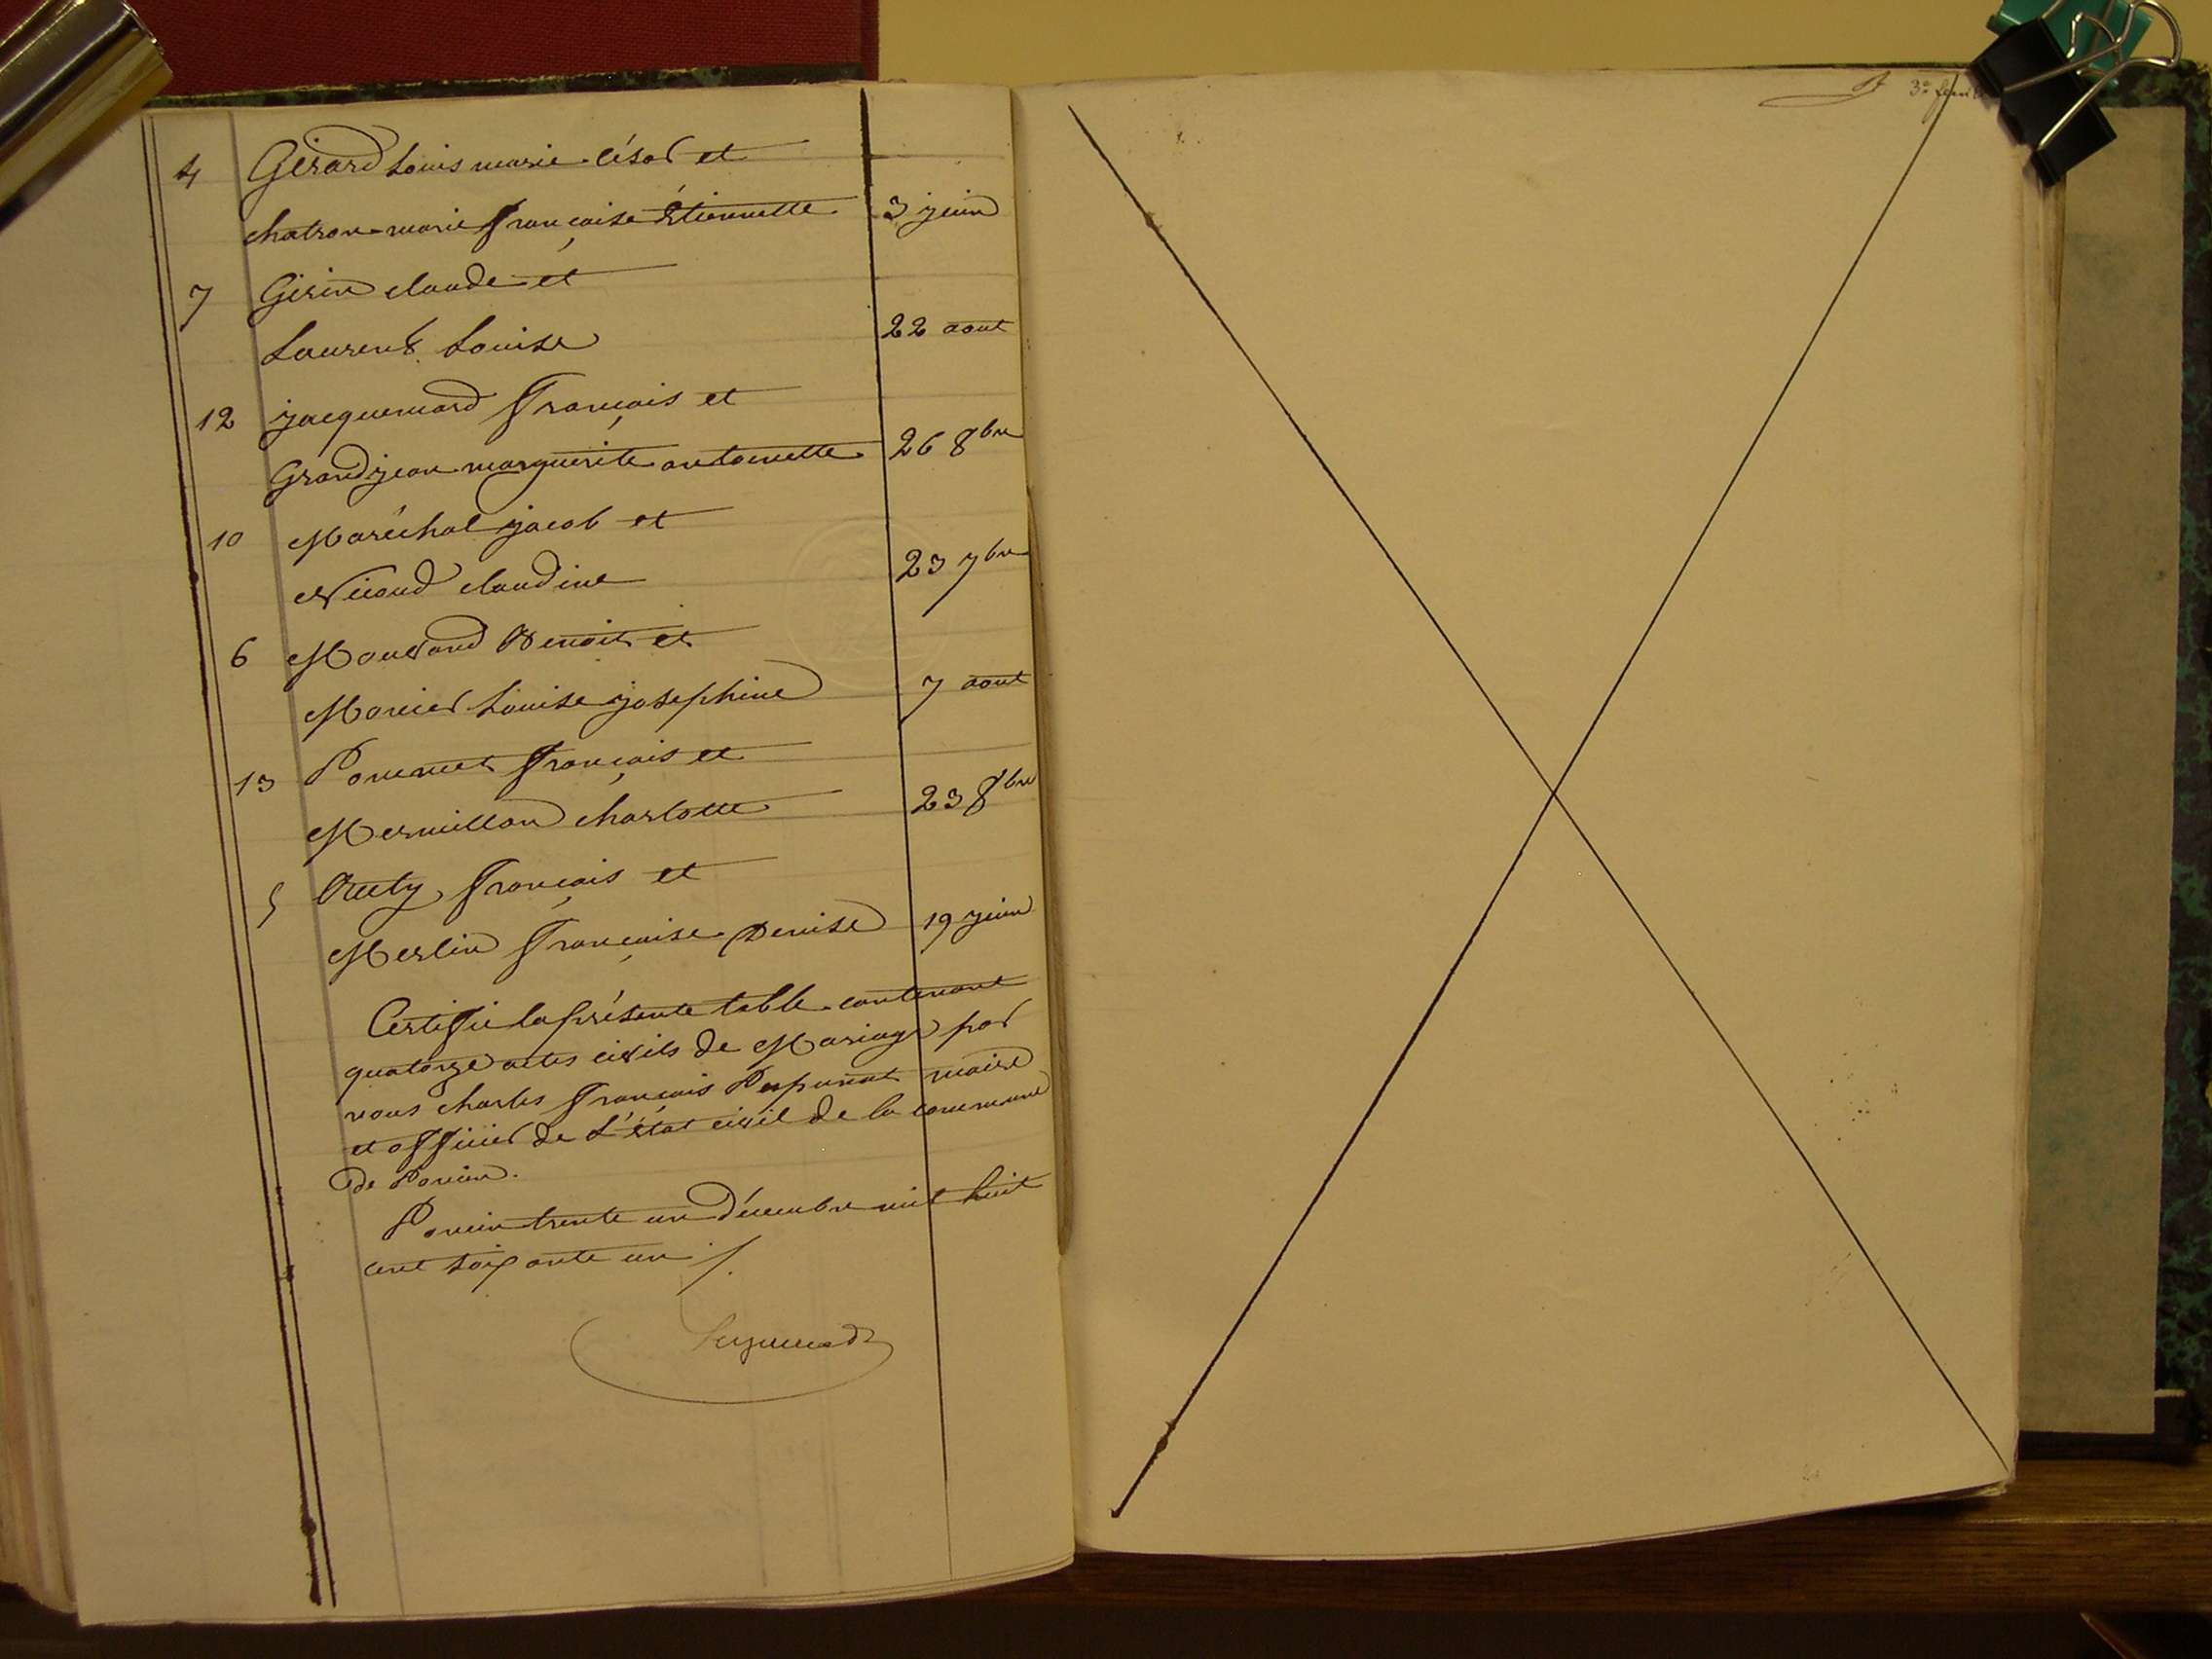 4 Girard Louis marie César et
chatron marie françoise Etiennette 3 juin
7 Girin claude et
Laurent Louise 22 aout
12 jacquemard françois et
Grandjean marguerite antoinette 26 8bre
10 Maréchal jacob et
Nicoud claudine 23 7bre
6 Benoit et
Louise josephine 7 aout
13 Pommet françois et
Mermillon charlotte 23 8bre
5 françois et
Merlin françoise Denise 19 juin
Certifié la présente table contenant
quatorze actes civils de Mariage par
nous charles françois maire
et officier de L'état civil de la commune
de Poncin.
Poncin trente un Décembre mil huit
cent soixante un
3e